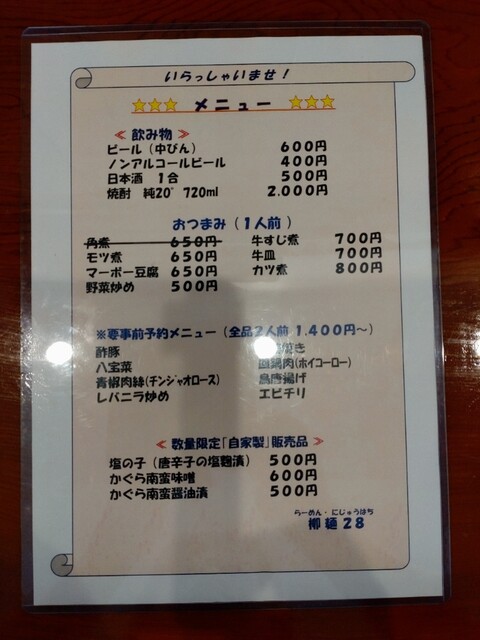 いらっしゃいませ！
★★★ メニュー ★★★
≪ 飲み物 ≫
ビール（中びん） 600円
ノンアルコールビール 400円
日本酒 1合 500円
焼酎 純20° 720ml 2.000円
おつまみ（1人前）
角煮 650円 牛すじ煮 700円
モツ煮 650円 牛皿 700円
マーボー豆腐 650円 カツ煮 800円
野菜炒め 500円
※要事前予約メニュー（全品2人前 1.400円～）
酢豚 焼き
八宝菜 回鍋肉(ホイコーロー)
青椒肉絲(チンジャオロース) 鳥唐揚げ
レバニラ炒め エビチリ
≪ 数量限定「自家製」販売品 ≫
塩の子（唐辛子の塩麹漬） 500円
かぐら南蛮味噌 600円
かぐら南蛮醤油漬 500円
らーめん・にじゅうはち
柳麺 28